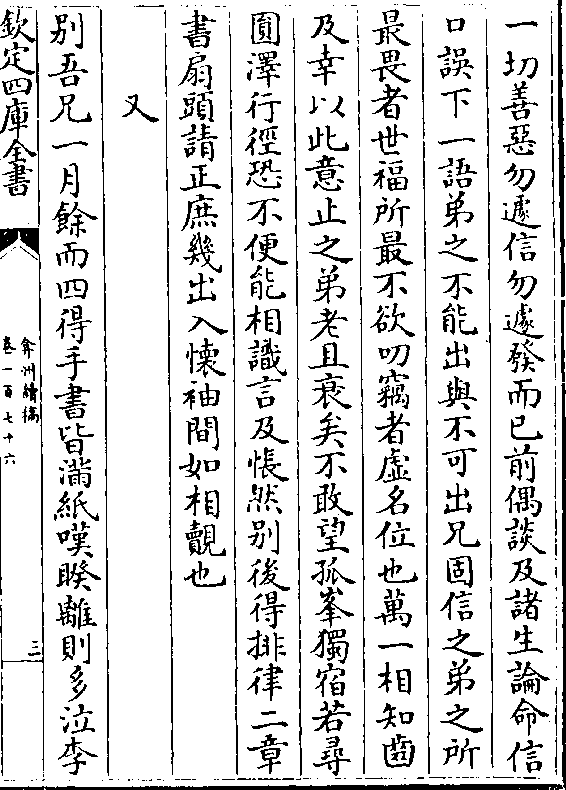 一切善惡勿遽信勿遽發而已前偶談及諸生論命信
口誤下一語弟之不能出與不可出兄固信之弟之所
最畏者世福所最不欲叨竊者虛名位也萬一相知齒
及幸以此意止之弟老且衰矣不敢望孤峯獨宿若尋
圓澤行徑恐不便能相識言及悵然别後得排律二章
書扇頭請正庶幾出入懐袖間如相覿也
又
别吾兄一月餘而四得手書皆滿紙嘆睽離則多泣李
欽定四庫全書
弇州續稿
卷一百七十六
三